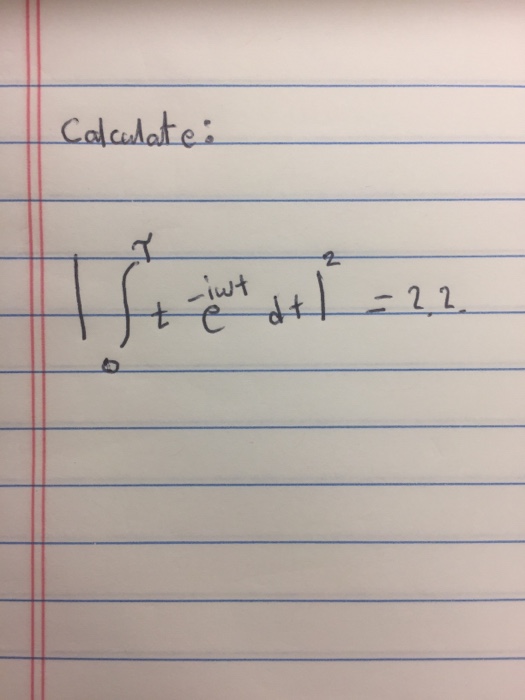 Calculate:
|∫₀ᵀ t e^{-iωt} dt|² = ??